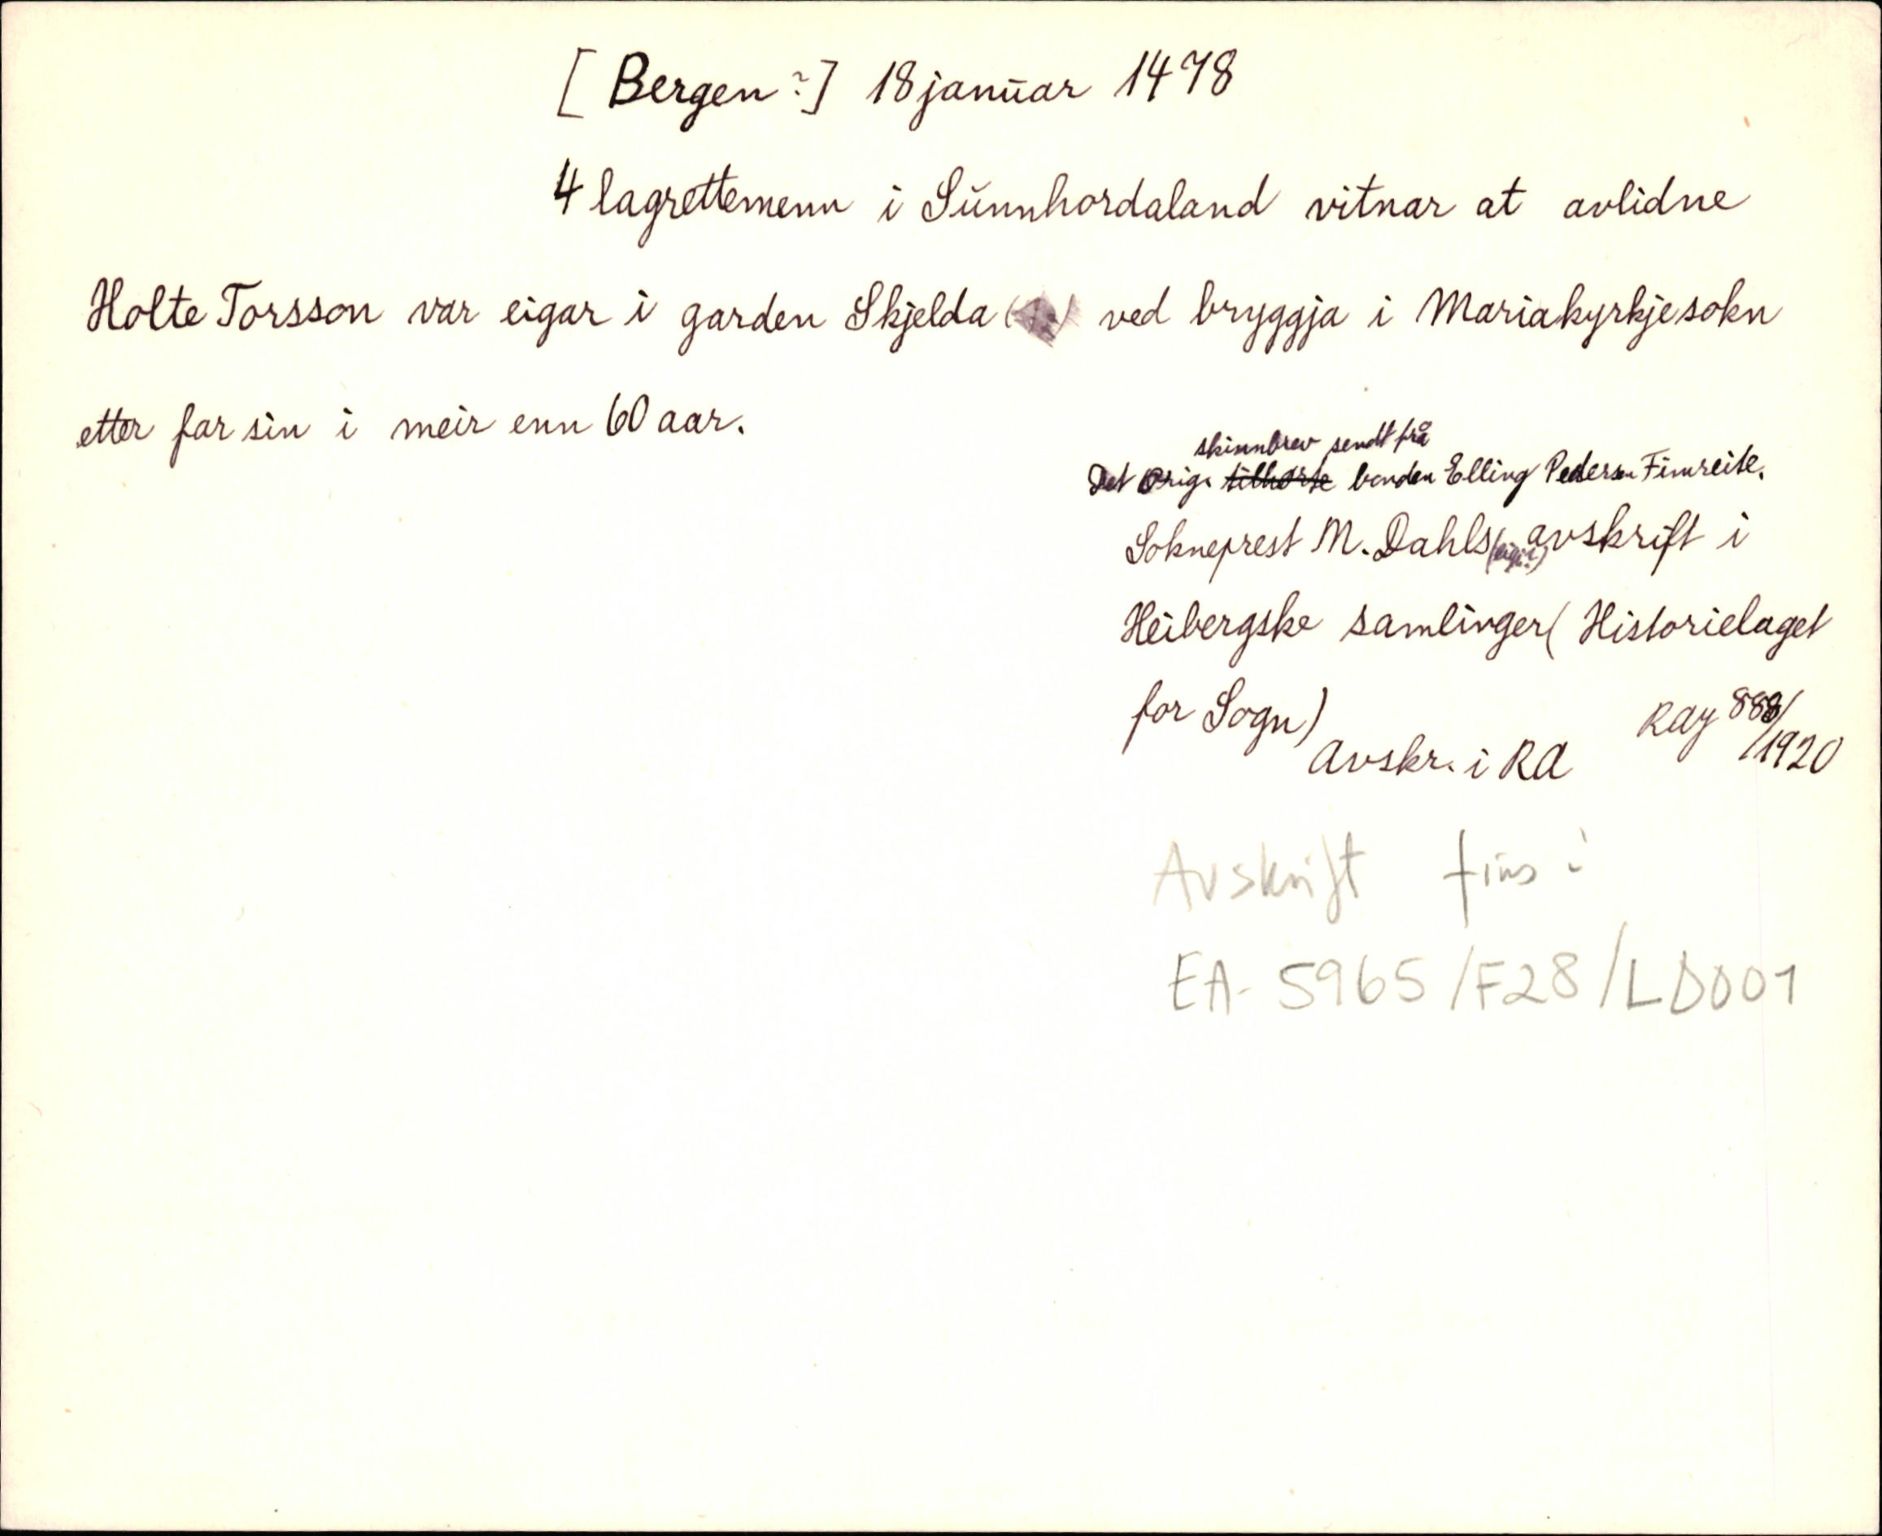 [Bergen?] 18 januar 1478
4 lagrettemenn i Sunnhordaland vitnar at avlidne
Holte Torsson var eigar i garden Skjelda ved bryggja i Mariakyrkjesokn
etter far sin i meir enn 60 aar.
skinnbrev sendt frå
Det orig. tilhørte bonden Elling Pedersen Fimreite.
Sokneprest M. Dahls avskrift i
Heibergske samlinger (Historielaget
for Sogn)
Avskr. i RA
888/1920
Avskrift fins i
EA-5965/F28/LD001